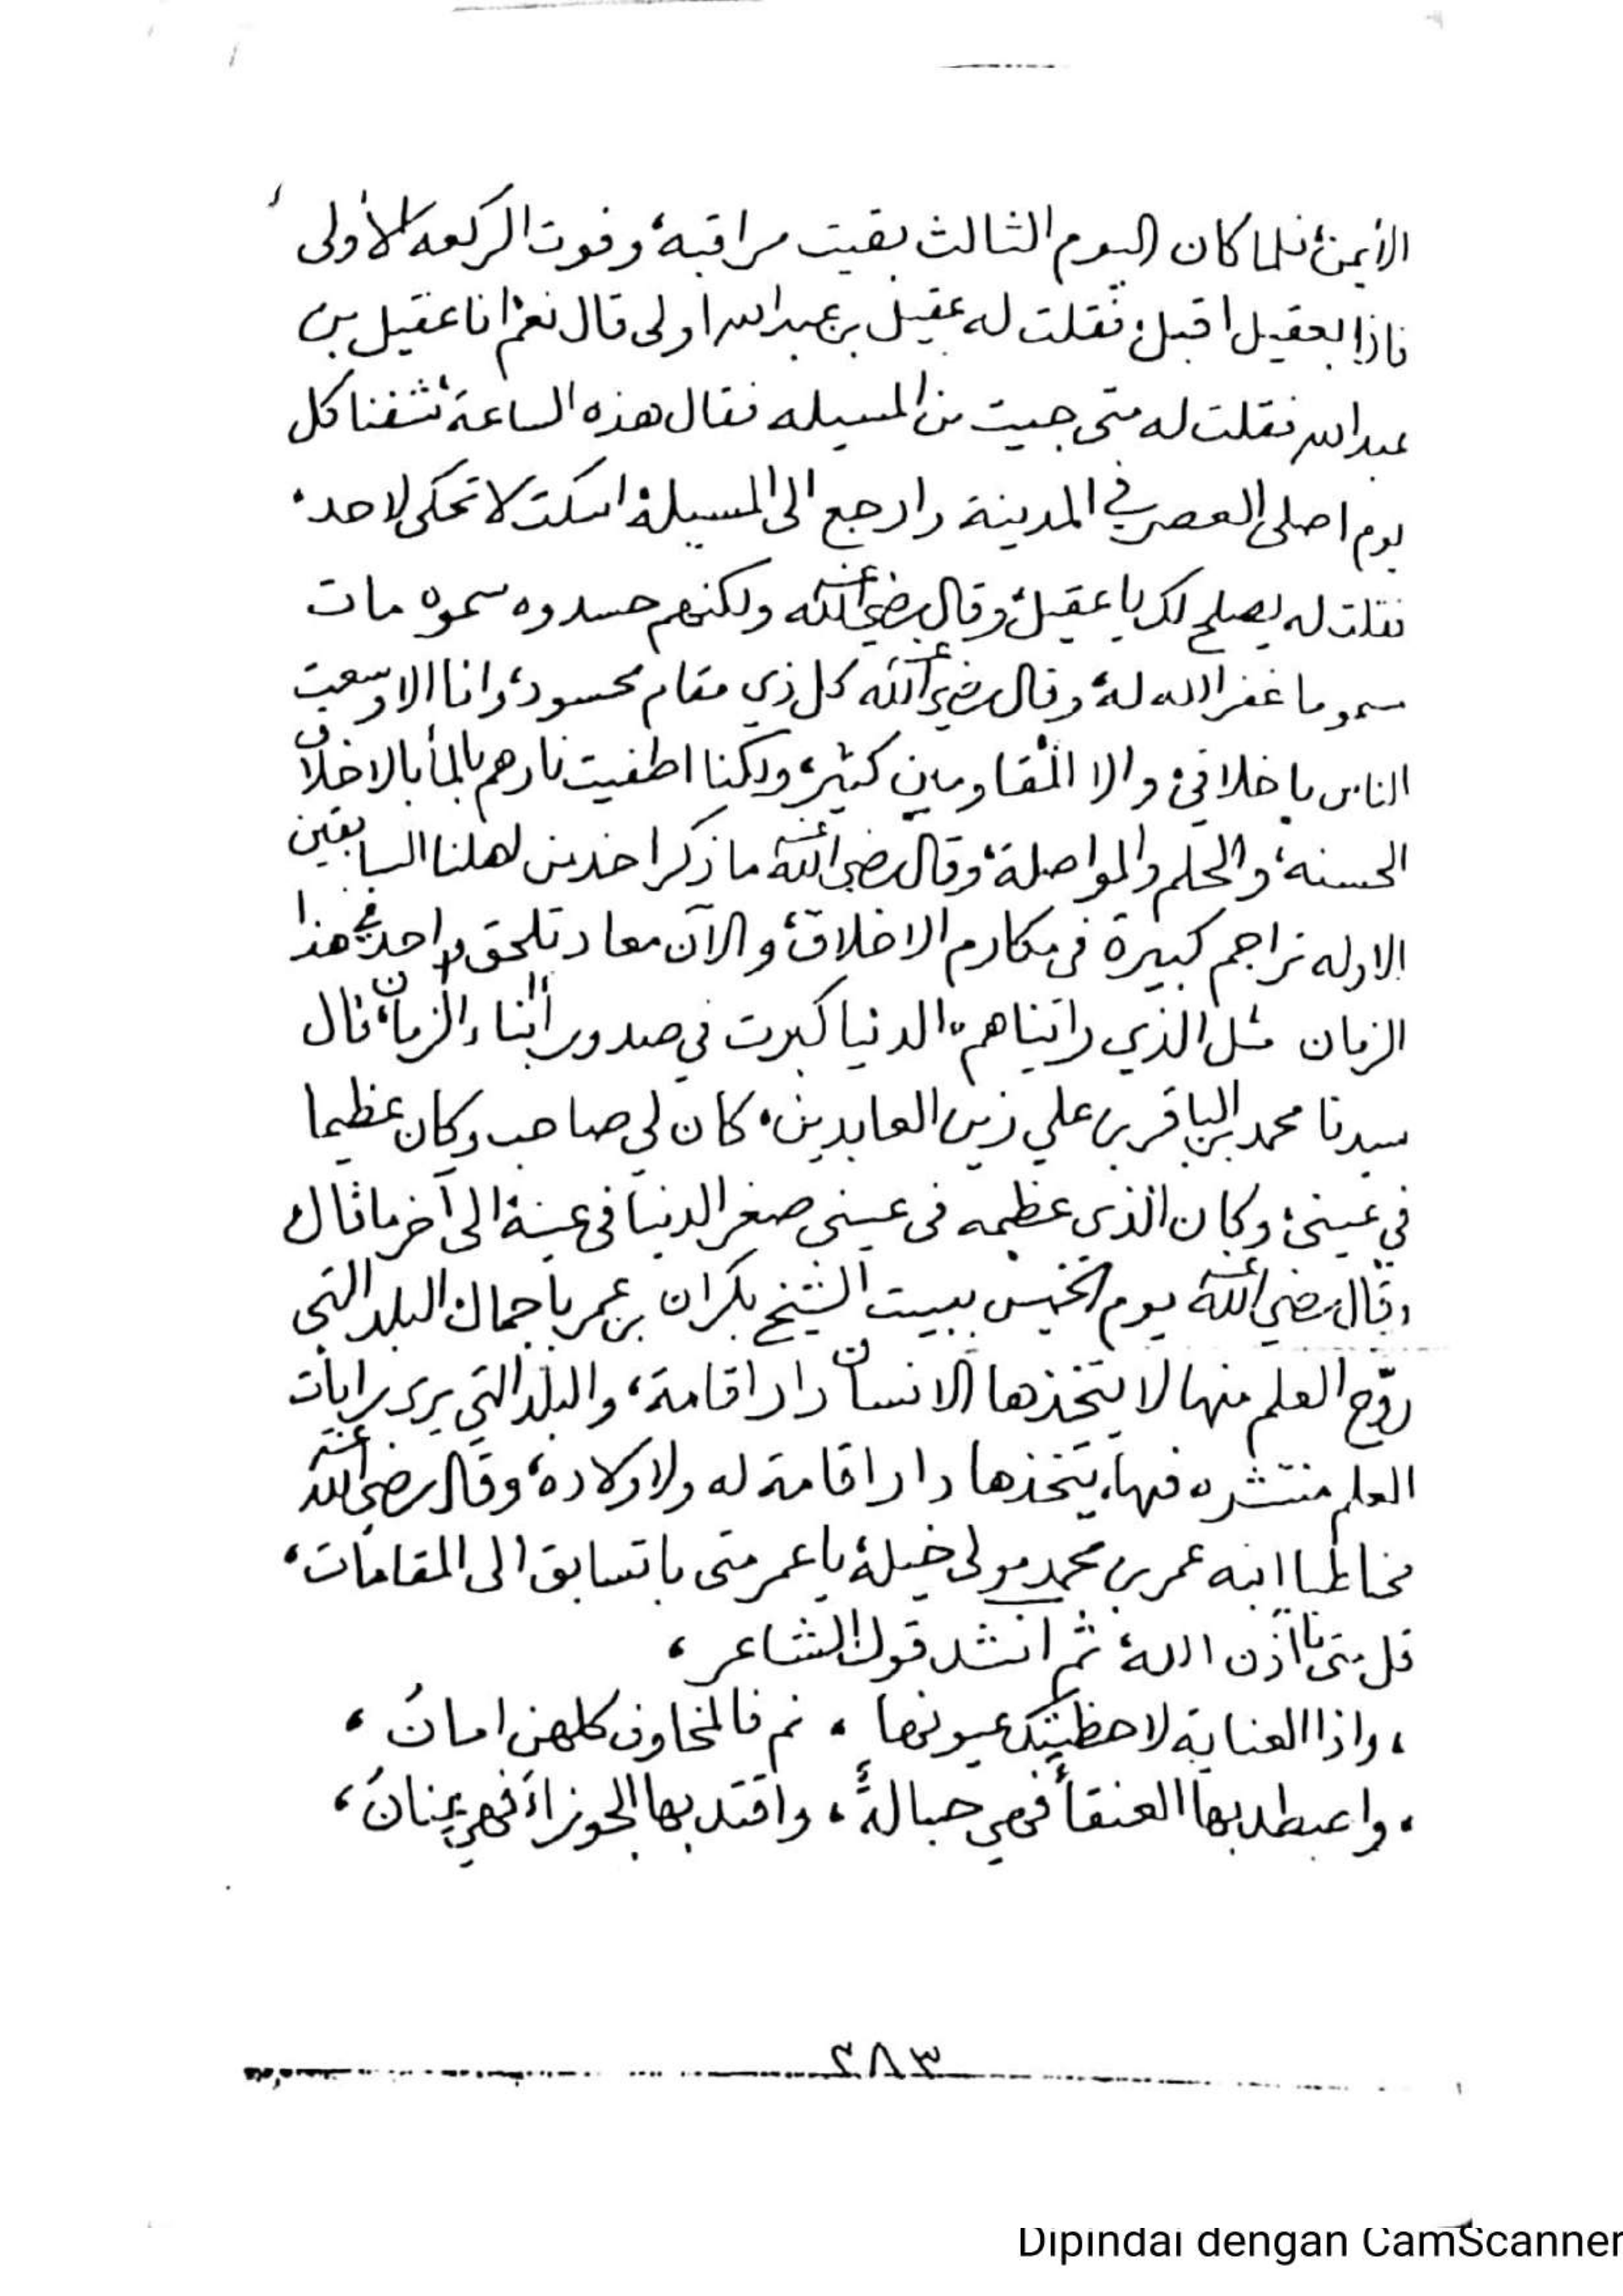 الأيمن، فلما كان اليوم الثالث بقيت مراقبه، وفوت الركعه الأولى
فاذا بعقيل اقبل، فقلت له عقيل بن عبدالله اولى قال نعم انا عقيل بن
عبدالله فقلت له متى جيت من المسيله فقال هذه الساعة، تشفنا كل
يوم اصلي العصر في المدينة وارجع الى المسيلة اسكت لا تحكى لاحد،
فقلت له يصلح لك يا عقيل، وقال رضي الله عنه ولكنهم حسدوه سموه مات
مسموما غفر الله له، وقال رضي الله عنه كل ذي مقام محسود، وانا الا وسعت
الناس باخلاقي، والا المقاومين كثير، ولكنا اطفيت نارهم بالمأ بالاخلاق
الحسنه، والحلم والمواصلة، وقال رضي الله عنه ما ذكر احد من لهلنا السابقين
الاوله تراجم كبيرة في مكارم الاخلاق، والآن معاد تلحق واحد في هذا
الزمان مثل الذي رايناهم، الدنيا كبرت في صدور أبناء الزمان، قال
سيدنا محمد الباقر بن علي زين العابدين، كان لي صاحب وكان عظيما
في عيني، وكان الذي عظمه في عيني صغر الدنيا في عينه الى آخر ما قال
وقال رضي الله عنه يوم الخميس ببيت الشيخ بكران بن عمر باجمال البلد التي
روّح العلم منها لا يتخذها الانسان دار اقامة، والبلد التي يرى رايات
العلم منتشره فيها، يتخذها دار اقامة له ولاولاده، وقال رضي الله عنه
مخاطبا ابنه عمر بن محمد مولى خيلة يا عمر متى با تسابق الى المقامات،
قل متى با اذن الله، ثم انشد قول الشاعر،
، واذا العناية لاحظتك عيونها ، نم فالمخاوف كلهن امانُ ،
، واصطد بها العنقأ فهي حبالةٌ ، واقتد بها الجوزاءَ فهي عنانُ ،
٢٨٣
Dipindai dengan CamScanner